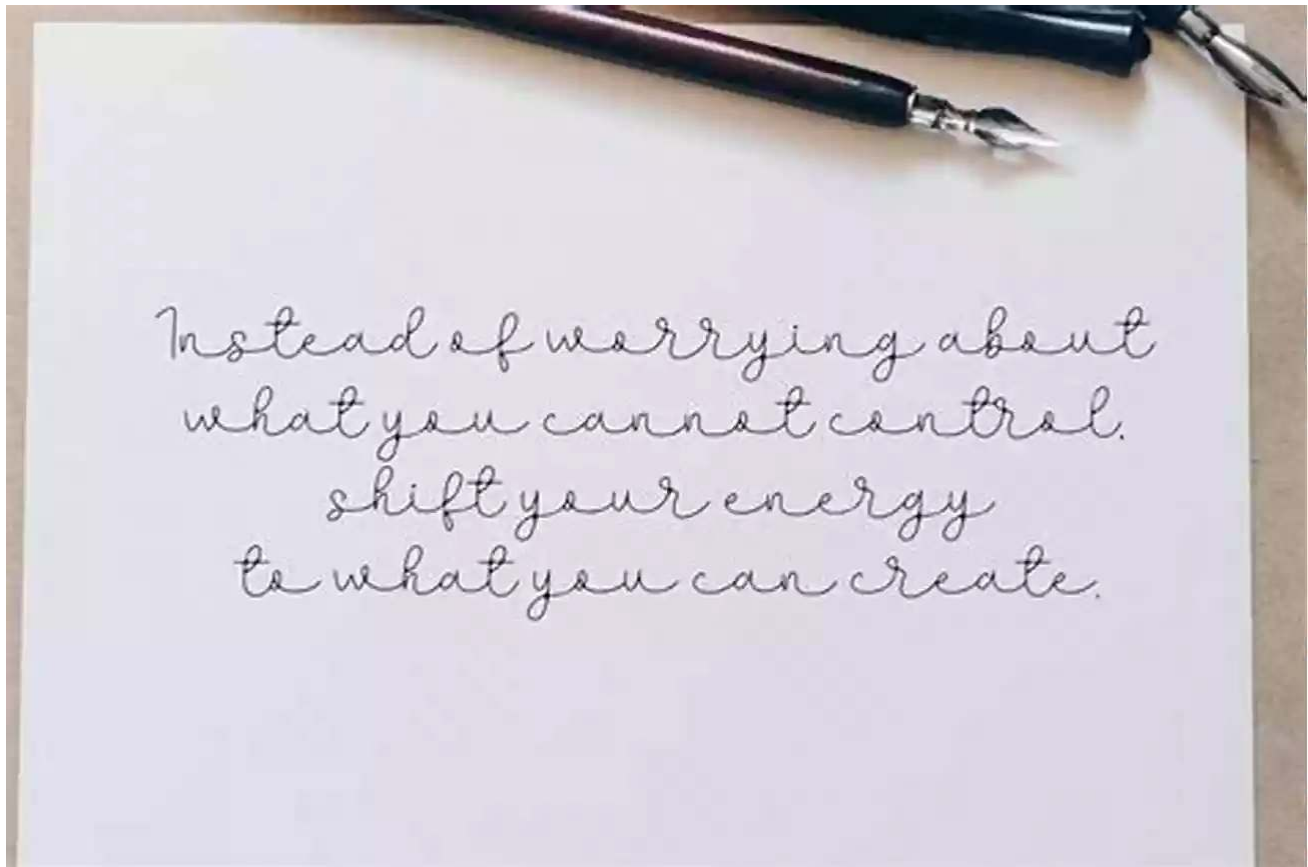 Instead of worrying about
what you cannot control.
shift your energy
to what you can create.